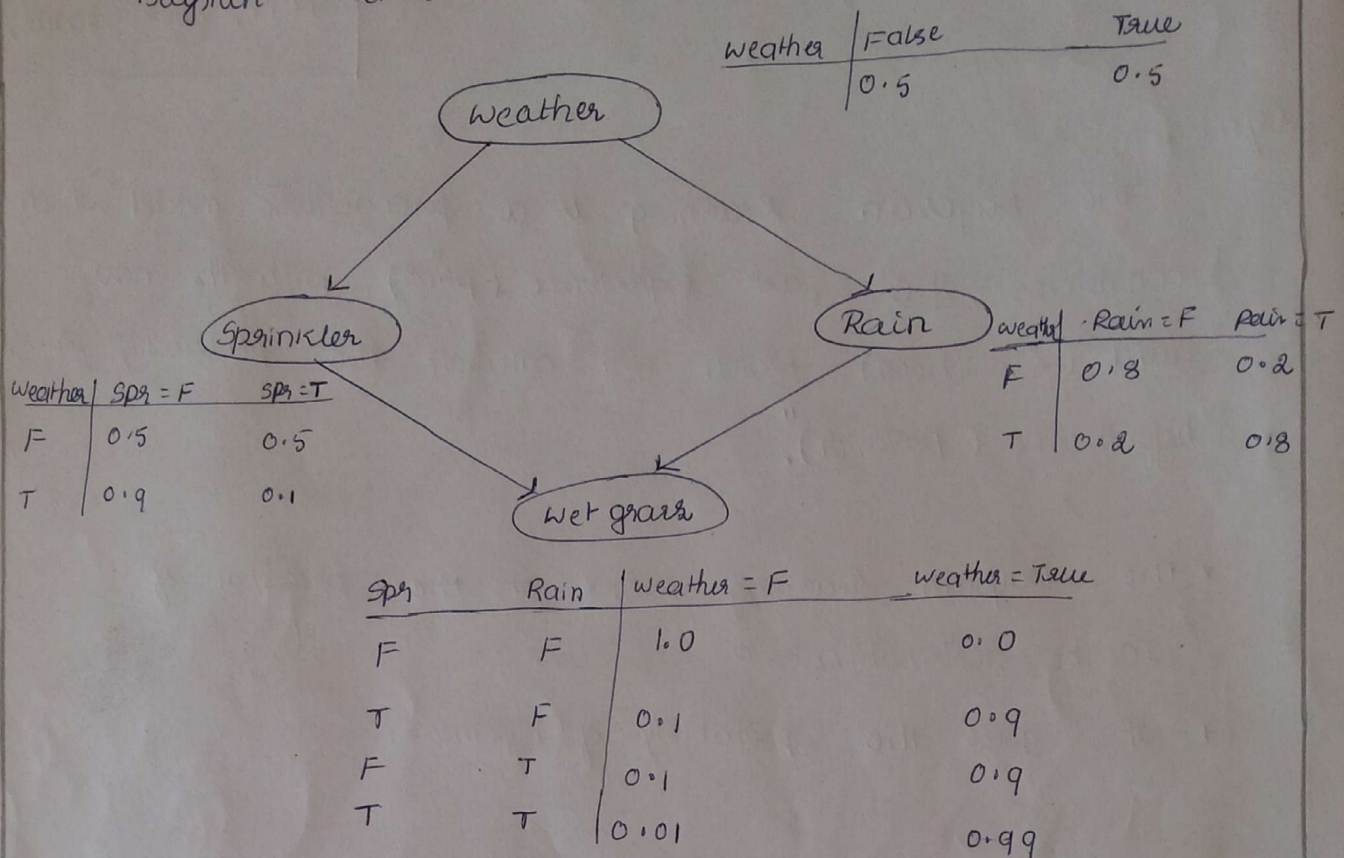 weather False True
0.5 0.5
Weather
Sprinkler
Rain
weather Rain = F Rain = T
F 0.8 0.2
T 0.2 0.8
weather Spr = F Spr = T
F 0.5 0.5
T 0.9 0.1
Wet grass
Spr Rain weather = F weather = True
F F 1.0 0.0
T F 0.1 0.9
F T 0.1 0.9
T T 0.01 0.99